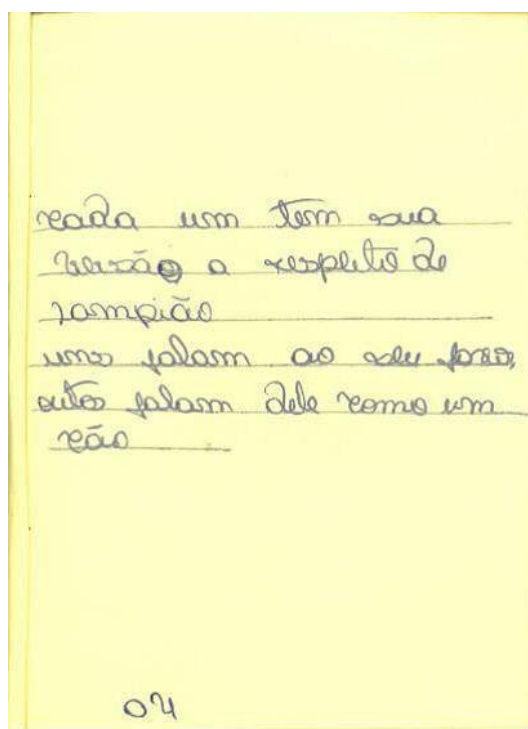 cada um tem sua
versão a respeito de
lampião
uns falam ao seu favor,
outos falam dele como um
cão
04